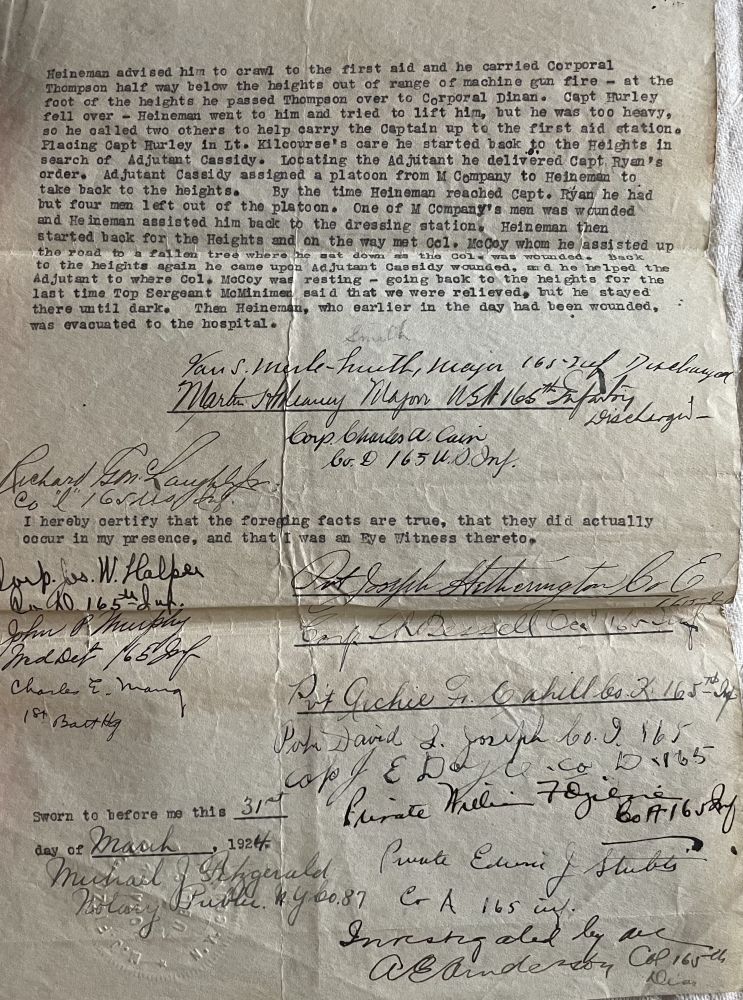 Heineman advised him to crawl to the first aid and he carried Corporal
Thompson half way below the heights out of range of machine gun fire - at the
foot of the heights he passed Thompson over to Corporal Dinan. Capt Hurley
fell over - Heineman went to him and tried to lift him, but he was too heavy,
so he called two others to help carry the Captain up to the first aid station.
Placing Capt Hurley in Lt. Kilcourse's care he started back to the Heights in
search of Adjutant Cassidy. Locating the Adjutant he delivered Capt Ryan's
order. Adjutant Cassidy assigned a platoon from M Company to Heineman to
take back to the heights. By the time Heineman reached Capt. Ryan he had
but four men left out of the platoon. One of M Company's men was wounded
and Heineman assisted him back to the dressing station. Heineman then
started back for the Heights and on the way met Col. McCoy whom he assisted up
the road to a fallen tree where he sat down as the Col. was wounded. Back
to the heights again he came upon Adjutant Cassidy wounded, and he helped the
Adjutant to where Col. McCoy was resting - going back to the heights for the
last time Top Sergeant McMinimen said that we were relieved, but he stayed
there until dark. Then Heineman, who earlier in the day had been wounded,
was evacuated to the hospital.
Smith
Van S. Merle-Smith, Major 165-Inf Discharged
Martin H Meaney Major USA 165th Infantry
Discharged-
Corp. Charles A. Cain
Co. D 165 U.S. Inf.
Richard J. McLaughlin Jr.
Co "L" 165 US Inf.
I hereby certify that the foregoing facts are true, that they did actually
occur in my presence, and that I was an Eye Witness thereto.
Corp. Jos. W. Halper
Co D. 165th Inf.
John P Murphy
Med Det 165 Inf
Charles E. Mang
1st Batt Hq
Pvt Joseph Hetherington Co E
165 Inf
Corp. Co 165 Inf
Pvt Archie F. Cahill Co. K. 165th Inf
Pvt David S. Joseph Co. I. 165
Cop J E Doyle. Co D. 165
Private William F Ogilvie
Co A 165 Inf
Private Edwin J Stubbs
Co A 165 inf.
Sworn to before me this 31st
day of March, 1924.
Michael J Fitzgerald
Notary Public. N.Y. Co. 87
Investigated by me
A E Anderson Col 165th